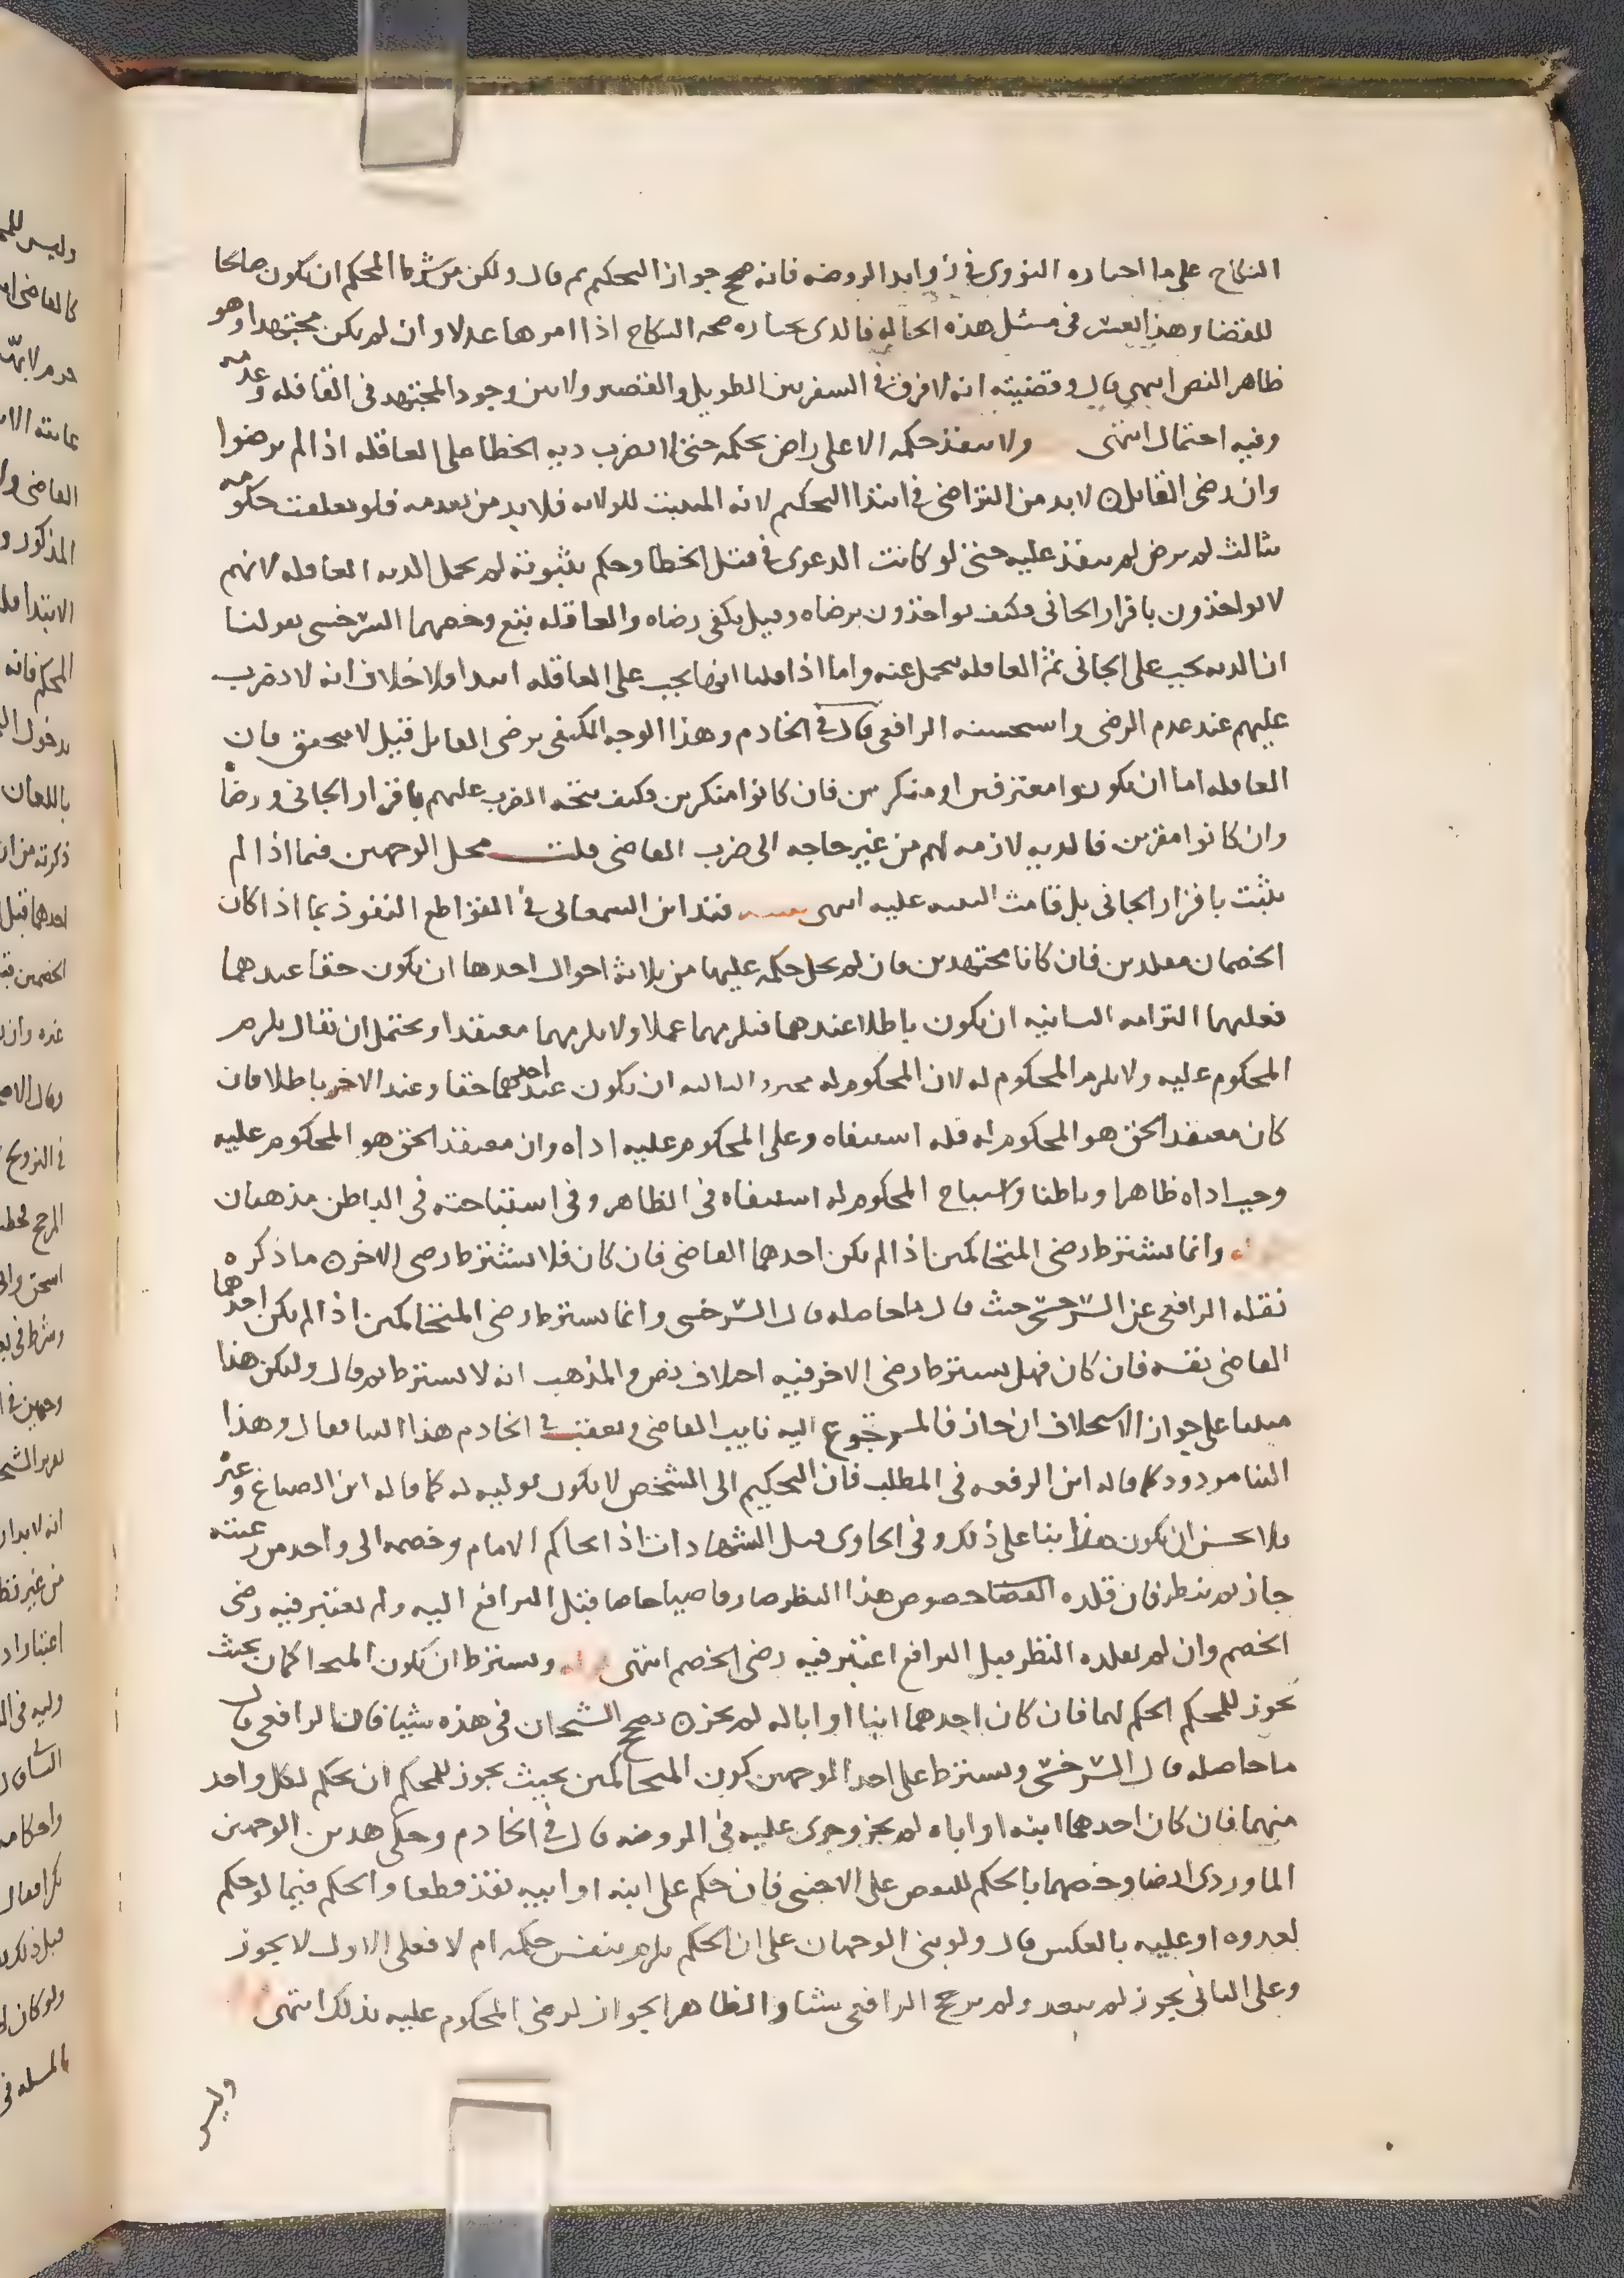 النكاح على ما اختاره النووي في زوايد الروضه فانه صحح جواز التحكيم ثم قال ولكن من شرط المحكم ان يكون صالحا
للقضا وهذا يعسر في مثل هذه الحاله فالذي نختاره صحه النكاح اذا ولت امرها عدلا وان لم يكن مجتهدا وهو
ظاهر النص انتهى قال وقضيته انه لا فرق في السفر بين الطويل والقصير ولا بين وجود المجتهد في القافله وعدمه
وفيه احتمال انتهى ولا ينفذ حكمه الا على راض بحكمه حتى لا يضرب ديه الخطا على العاقله اذا لم يرضوا
وان رضى القاتل لا بد من التراضي في ابتدا التحكيم لانه المثبت للولايه فلا بد من تقدمه فلو تعلقت حكومه
بثالث لم يرض لم ينفذ عليه حتى لو كانت الدعوى في قتل الخطا وحكم بثبوته لم يحمل الديه العاقله لانهم
لا يواخذون باقرار الجاني فكيف يواخذون برضاه وقيل يكفي رضاه والعاقله تبع وخصهما السرخسي بقولنا
ان الديه تجب على الجاني ثم العاقله تتحمل عنه واما اذا قلنا انها تجب على العاقله ابتدا فلا خلاف انه لا تضرب
عليهم عند عدم الرضى واستحسنه الرافعي قال في الخادم وهذا الوجه المكتفي برضى القاتل قيل لا يتحقق فان
العاقله اما ان يكونوا معترفين او منكرين فان كانوا منكرين فكيف يتجه الضرب عليهم باقرار الجاني ورضاه
وان كانوا مقرين فالديه لازمه لهم من غير حاجه الى ضرب القاضي قلت محل الوجهين فيما اذا لم
يثبت باقرار الجاني بل قامت البينه عليه انتهى قيد ابن السمعاني في القواطع النفوذ بما اذا كان
الخصمان مقلدين فان كانا مجتهدين فان لم يخل حكمه عليهما من ثلاثه احوال احدها ان يكون حقا عندهما
فعليهما التزامه الثانيه ان يكون باطلا عندهما فيلزمهما عملا ولا يلزمهما معتقدا ويحتمل ان يقال يلزم
المحكوم عليه ولا يلزم المحكوم له لان المحكوم له مخير الثالثه ان يكون عند احدهما حقا وعند الاخر باطلا فان
كان معتقد الحق هو المحكوم له فله استيفاه وعلى المحكوم عليه اداه وان معتقد الحق هو المحكوم عليه
وجب اداه ظاهرا وباطنا واستباح المحكوم له استيفاه في الظاهر وفي استباحته في الباطن مذهبان
وانما يشترط رضى المتحاكمين اذا لم يكن احدهما القاضي فان كان فلا يشترط رضى الاخر ما ذكره
نقله الرافعي عن السرخسي حيث قال ما حاصله قال السرخسي وانما يشترط رضى المتحاكمين اذا لم يكن احدهما
القاضي نفسه فان كان فهل يشترط رضى الاخر فيه اختلاف نص والمذهب انه لا يشترط ثم قال وليكن هذا
مبنيا على جواز الاستخلاف ان جاز فالمرجوع اليه نايب القاضي وتعقبه في الخادم هذا البنا فقال وهذا
البنا مردود كما قاله ابن الرفعه في المطلب فان التحكيم الى الشخص لا يكون توليه له كما قاله ابن الصباغ وغيره
فلا يحسن ان يكون هذا بنا على ذلك وفي الحاوي قبيل الشهادات اذا تحاكم الامام وخصمه الى واحد من رعيته
جاز ثم ينظر فان قلده القضا خصوص هذا النظر صار قاضيا خاصا قبل الترافع اليه ولم يعتبر فيه رضى
الخصم وان لم يقلده النظر قبل الترافع اعتبر فيه رضى الخصم انتهى ويشترط ان يكون المتحاكمان بحيث
يجوز للمحكم الحكم لهما فان كان احدهما ابنا او ابا له لم يجز لم يصحح الشيخان في هذه شيا فان الرافعي قال
ما حاصله قال السرخسي ويشترط على احد الوجهين كون المتحاكمين بحيث يجوز للمحكم ان يحكم لكل واحد
منهما فان كان احدهما ابنه او اباه لم يجز وجرى عليه في الروضه قال في الخادم وحكى هذين الوجهين
الماوردي ايضا وخصهما بالحكم للبعض على الاجنبي فان حكم على ابنه او ابيه نفذ قطعا والحكم فيما لو حكم
لعدوه او عليه بالعكس قال ولو بنى الوجهان على ان الحكم يلزم بنفس حكمه ام لا فعلى الاول لا يجوز
وعلى الثاني يجوز لم يبعد ولم يرجح الرافعي شيا والظاهر الجواز لرضى المحكوم عليه بذلك انتهى
وليس